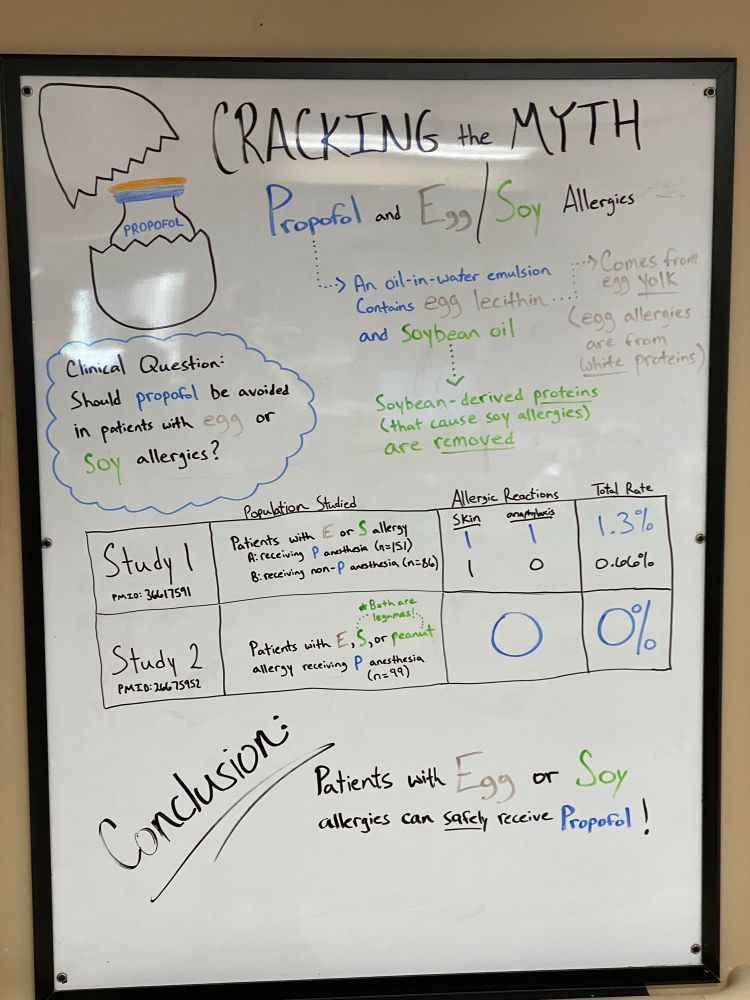 CRACKING the MYTH
PROPOFOL
Propofol and Egg/Soy Allergies
An oil-in-water emulsion
Contains egg lecithin
and Soybean oil
Comes from
egg yolk
(egg allergies
are from
white proteins)
Soybean-derived proteins
(that cause soy allergies)
are removed
Clinical Question:
Should propofol be avoided
in patients with egg or
Soy allergies?
Population Studied
Allergic Reactions
Total Rate
Study 1
PMID: 36617591
Patients with E or S allergy
A: receiving P anesthesia (n=151)
B: receiving non-P anesthesia (n=86)
Skin anaphylaxis
1 1
1 0
1.3%
0.66%
Study 2
PMID: 26675952
*Both are
legumes!
Patients with E, S, or peanut
allergy receiving P anesthesia
(n=99)
0
0%
Conclusion:
Patients with Egg or Soy
allergies can safely receive Propofol!